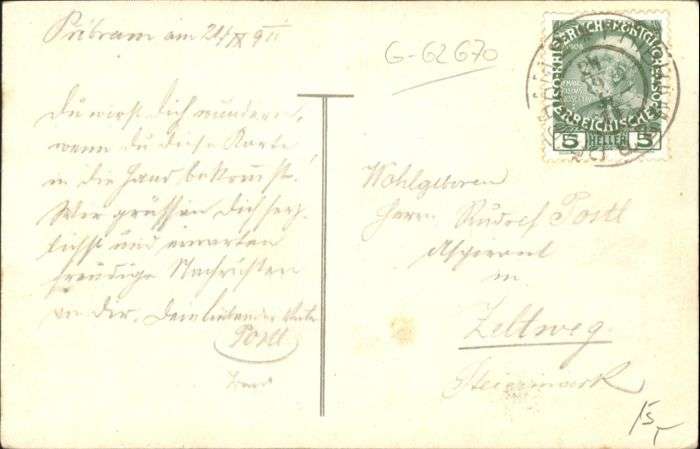 Pribram am 24/IX 911
G-62670
Du wirst Dich wundern,
wenn du diese Karte
in die Hand bekommst.
Wir grüssen Dich herz-
lichst und erwarten
freudige Nachrichten
von Dir. Dein liebender
Postl
KAISERLICH KÖNIGLICHE
ÖSTERREICHISCHE
5 HELLER 5
Wohlgeboren
Herrn Rudolf Postl
Aspirant
in
Zeltweg
Steiermark